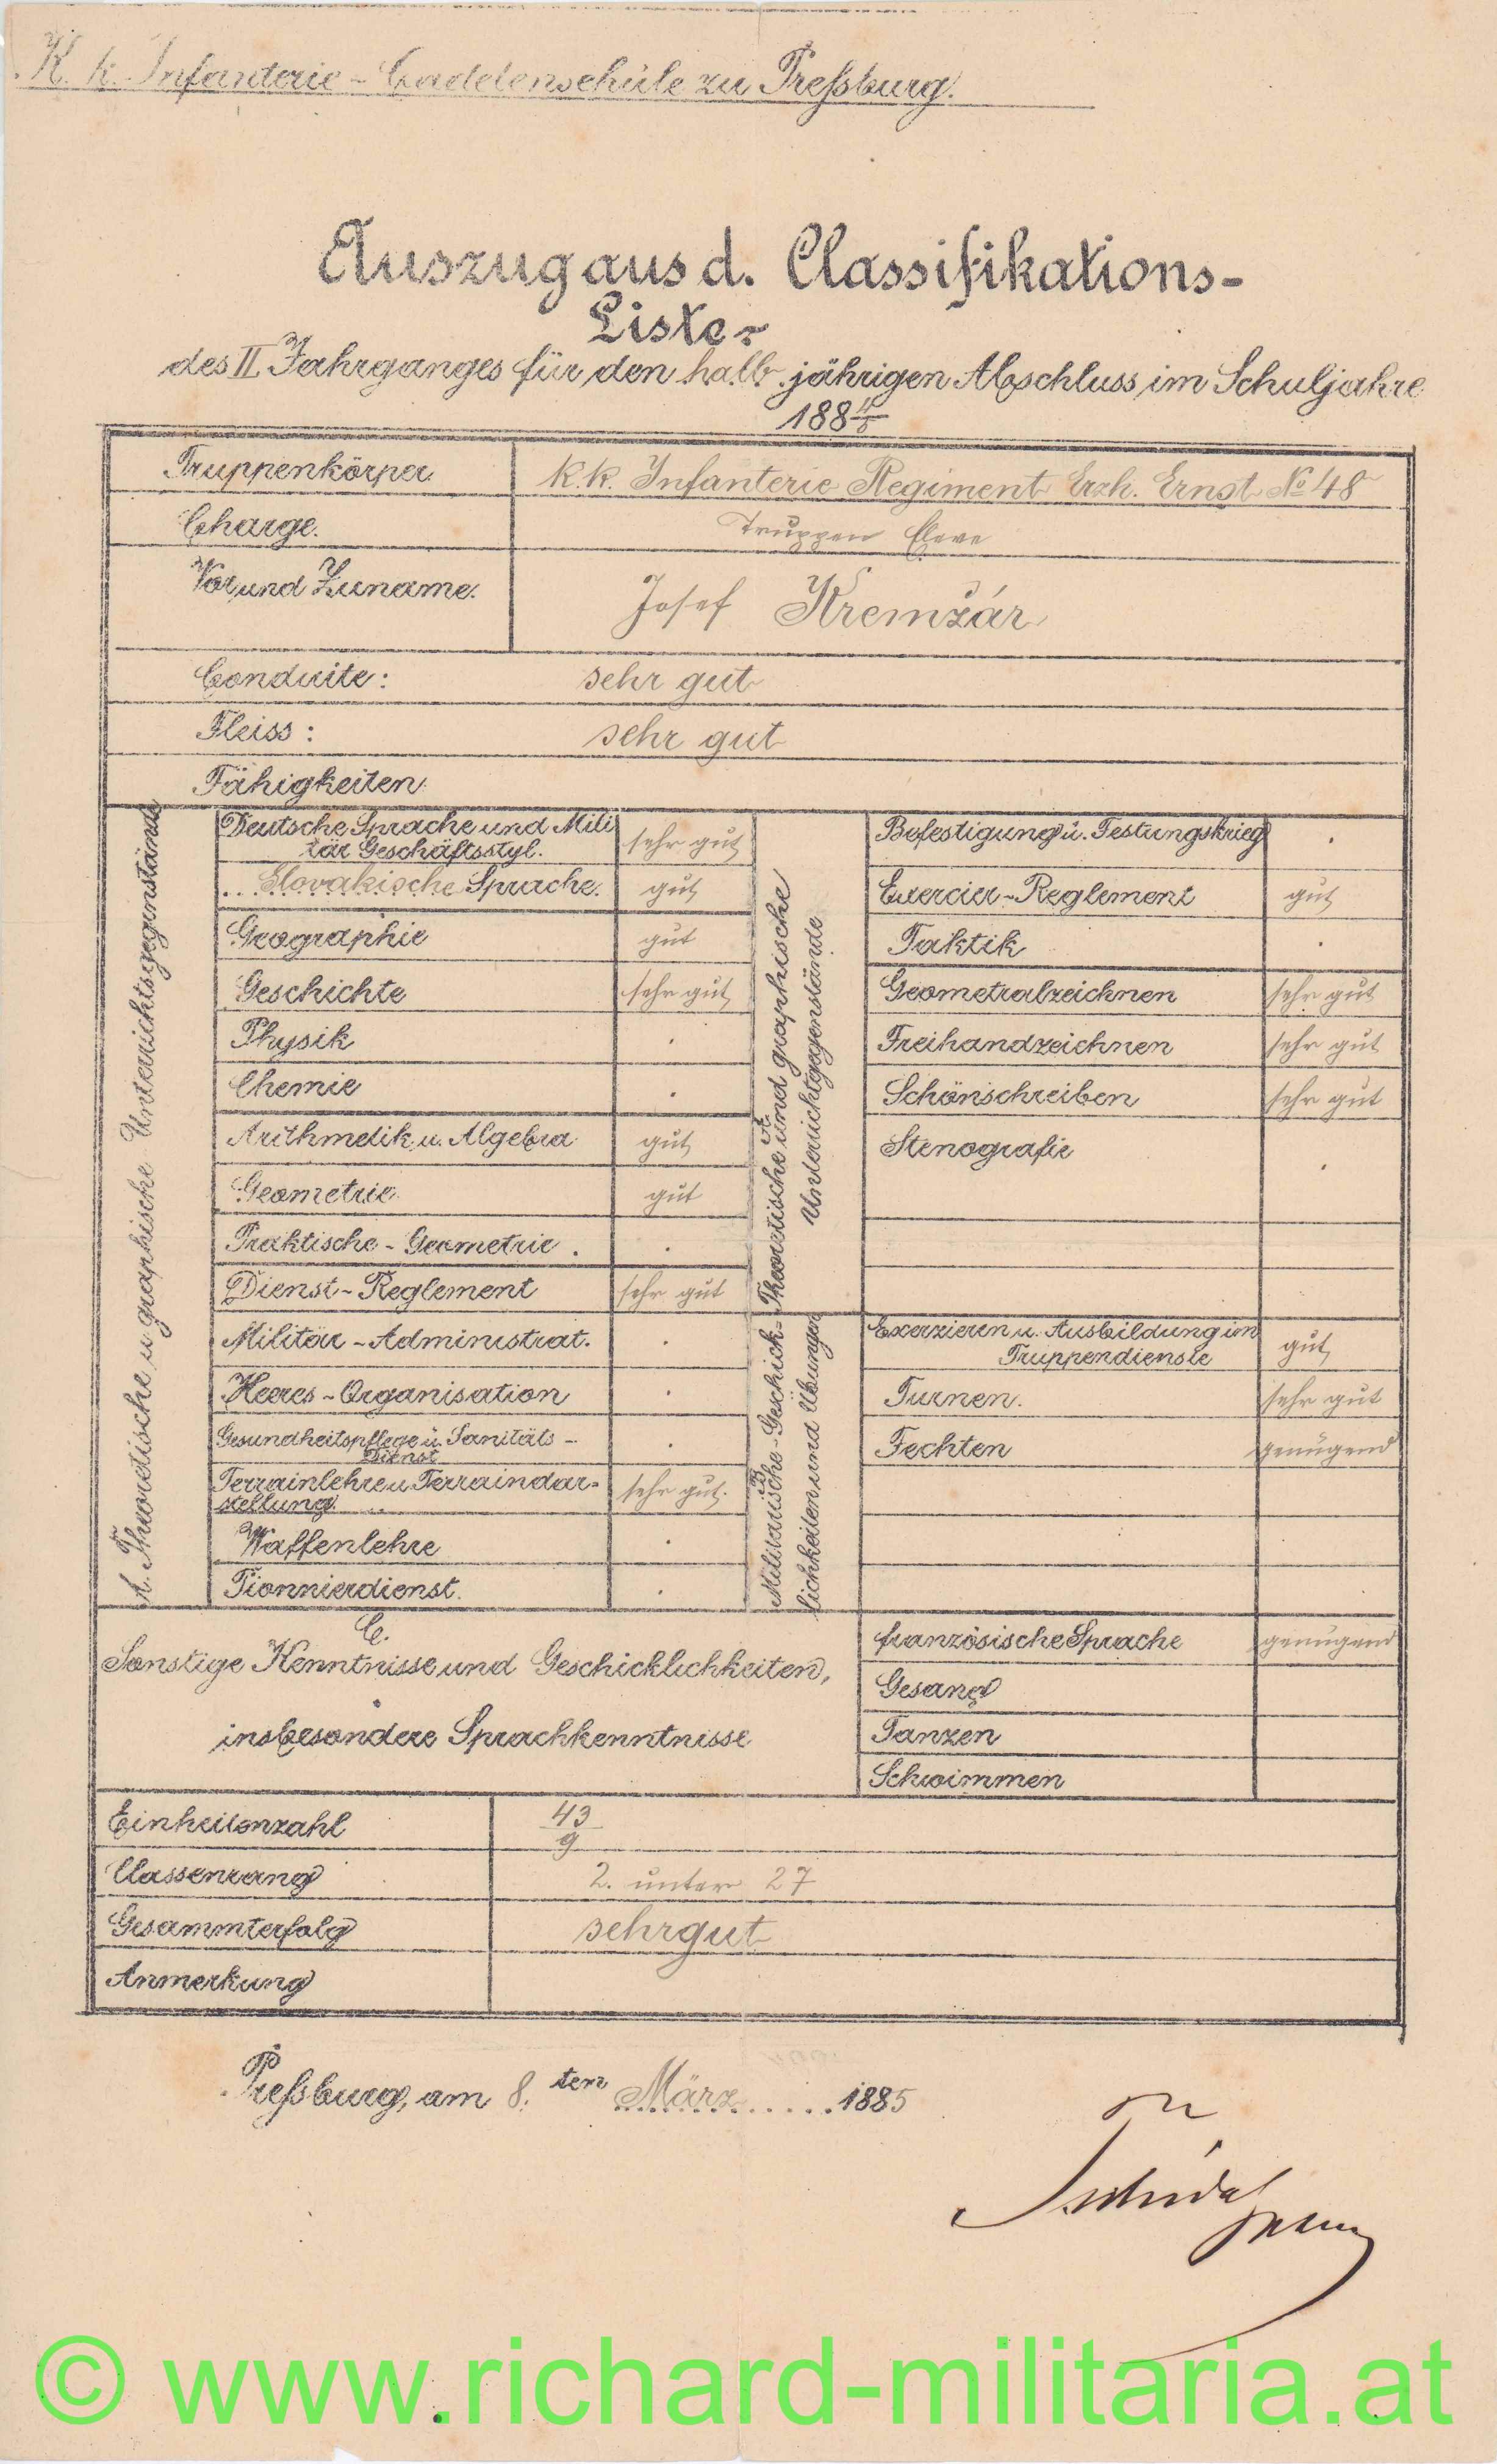 K. k. Infanterie-Cadetenschule zu Preßburg.
Auszug aus d. Classifikations-
Liste
des II Jahrganges für den halb jährigen Abschluss im Schuljahre
188 4/5
Truppenkörper K. k. Infanterie Regiment Erzh. Ernst No 48
Charge. Truppen Eleve
Vor und Zuname. Josef Kremžár
Conduite: sehr gut
Fleiss: sehr gut
Fähigkeiten
A. Theoretische u graphische Unterrichtsgegenstände
Deutsche Sprache und Mili
tär Geschäftsstyl. sehr gut
Slovakische Sprache. gut
Geographie gut
Geschichte sehr gut
Physik .
Chemie .
Arithmetik u. Algebra gut
Geometrie gut
Praktische-Geometrie . .
Dienst-Reglement sehr gut
Militär-Administrat. .
Heeres-Organisation .
Gesundheitspflege u. Sanitäts-
Dienst .
Terrainlehre u. Terraindar-
stellung. sehr gut.
Waffenlehre .
Pionnierdienst. .
A.
Theoretische und graphische
Unterrichtgegenstände
Befestigung u. Festungskrieg .
Exercier-Reglement gut
Taktik .
Geometralzeichnen sehr gut
Freihandzeichnen sehr gut
Schönschreiben sehr gut
Stenografie .
B.
Militärische-Geschick-
lichkeiten und Übungen
Exerzieren u. Ausbildung im
Truppendienste gut
Turnen. sehr gut
Fechten genügend
C.
Sonstige Kenntnisse und Geschicklichkeiten,
insbesondere Sprachkenntnisse
französische Sprache genügend
Gesang
Tanzen
Schwimmen
Einheitenzahl 43/9
Classenrang 2. unter 27
Gesammterfolg sehr gut
Anmerkung
Preßburg, am 8. ten März 1885
© www.richard-militaria.at